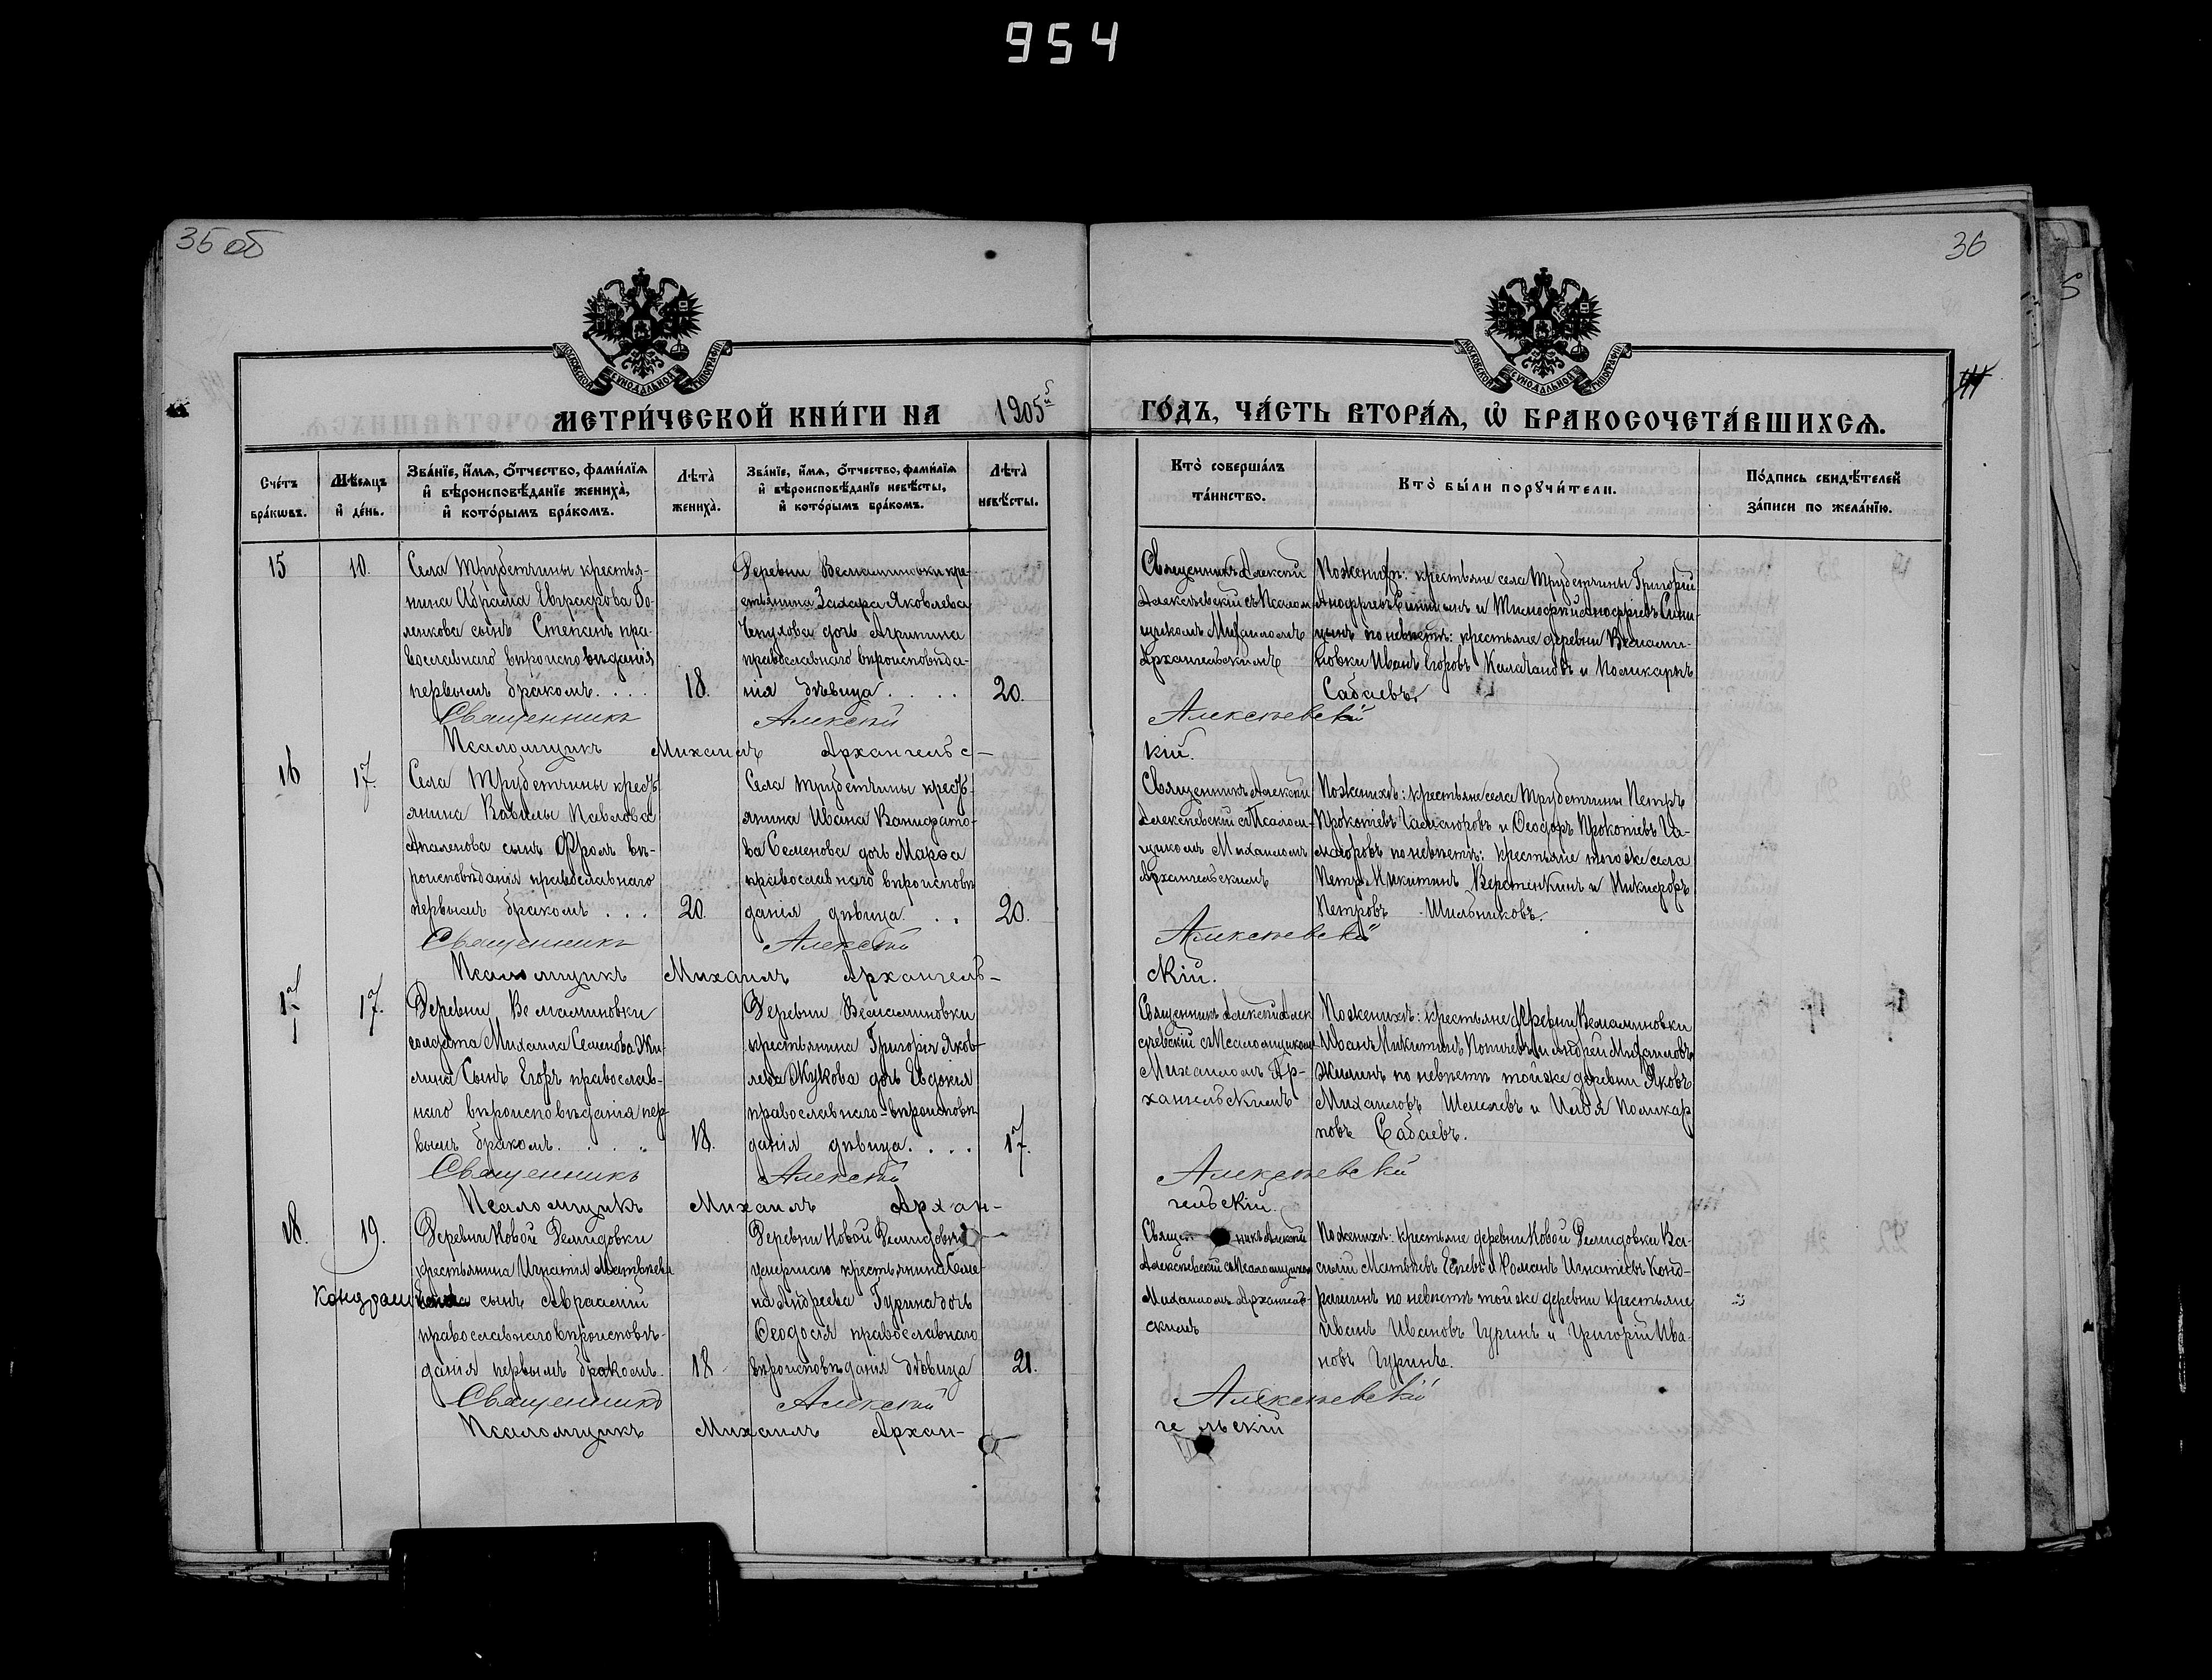 954
35 об
36
МОСКОВСКОЙ СѴНОДАЛЬНОЙ ТИПОГРАФІИ
МОСКОВСКОЙ СѴНОДАЛЬНОЙ ТИПОГРАФІИ
МЕТРИ́ЧЕСКОЙ КНИ́ГИ НА 1905й
ГО́ДЪ, ЧА́СТЬ ВТОРА́Ѧ, Ѽ БРАКОСОЧЕТА́ВШИХСѦ.
Сче́тъ бра́кѡвъ.
Мѣ́сяцъ и́ де́нь.
Зва́нїе, и́мѧ, о́тчество, фами́лїѧ
и́ вѣроисповѣ́данїе жениха̀,
и́ кото́рымъ бра́комъ.
Лѣта̀
жениха̀.
Зва́нїе, и́мѧ, о́тчество, фами́лїѧ
и́ вѣроисповѣ́данїе невѣ́сты,
и́ кото́рымъ бра́комъ.
Лѣта̀
невѣ́сты.
Кто̀ соверша́лъ
та́инство.
Кто̀ бы́ли порꙋчи́тели.
По́дпись свидѣ́телей
за́писи по жела́нїю.
15
10.
Села Трубетчины крестья-
нина Абрама Евграфова Го-
ленкова сынъ Степанъ пра-
вославнаго вѣроисповѣданія
первымъ бракомъ. . . .
18.
Деревни Вельяминовки кре-
стьянина Захара Яковлева
дочь Агрипина
православнаго вѣроисповѣда-
нія дѣвица . . . .
20.
Священникъ Алексій
Алексѣевскій съ Псалом
щикомъ Михаиломъ
Архангельскимъ
По женихѣ: крестьяне села Трубетчины Григорій
Анофріевъ Синицынъ и Тимофей Анофріевъ Сини-
цынъ по невѣстѣ: крестьяне деревни Вельями-
новки Иванъ Егоровъ и Поликарпъ
Сабаевъ.
Священникъ Алексій Алексѣевскій
Псаломщикъ Михаилъ Архангельс-
кій.
16
17.
Села Трубетчины кресть
янина Вавилы Павлова
сынъ Фролъ вѣ-
роисповѣданія православнаго
первымъ бракомъ . . .
20.
Села Трубетчины кресть-
янина Ивана Ванифато-
ва Семенова дочь Марѳа
православнаго вѣроисповѣ
данія дѣвица . .
20.
Священникъ Алексій
Алексѣевскій съ Псалом-
щикомъ Михаиломъ
Архангельскимъ
По женихѣ: крестьяне села Трубетчины Петръ
Прокопіевъ и Ѳеодоръ Прокопіевъ Га-
по невѣстѣ: крестьяне того же села
Петръ Никитинъ Веретенкинъ и Никифоръ
Петровъ Шильниковъ.
Священникъ Алексій Алексѣевскій
Псаломщикъ Михаилъ Архангель-
скій.
17
17.
Деревни Вельяминовки
солдата Михаила Семенова Жи-
лина Сынъ Егоръ православ-
наго вѣроисповѣданія пер
вымъ бракомъ. . . . .
18.
Деревни Вельяминовки
крестьянина Григорія Яков-
лева Жукова дочь Евдокія
православнаго вѣроисповѣ
данія дѣвица. . . .
17.
Священникъ Алексій Алек
сѣевскій съ Псаломщикомъ
Михаиломъ Ар-
хангельскимъ
По женихѣ: крестьяне деревни Вельяминовки
Иванъ Никитинъ и Андрей Михаиловъ
Жилинъ по невѣстѣ той же деревни Яковъ
Михаиловъ и Илья Поликар
повъ Сабаевъ.
Священникъ Алексій Алексѣевскій
Псаломщикъ Михаилъ Архан-
гельскій.
18.
19.
Деревни Новой Демидовки
крестьянина Игнатія Матвѣева
Кондрашина сынъ Авраамій
православнаго вѣроисповѣ-
данія первымъ бракомъ.
18
Деревни Новой Демидовки
умершаго крестьянина Семе-
на Андреева Гурина дочь
Ѳеодосія православнаго
вѣроисповѣданія дѣвица
21.
Священникъ Алексій
Алексѣевскій съ Псаломщикомъ
Михаиломъ Архангель-
скимъ
По женихѣ: крестьяне деревни Новой Демидовки Ва-
силій Матвѣевъ и Романъ Игнатіевъ Конд-
рашинъ по невѣстѣ той же деревни крестьяне
Иванъ Ивановъ Гуринъ и Григорій Ива-
новъ Гуринъ.
Священникъ Алексій Алексѣевскій
Псаломщикъ Михаилъ Архан-
гельскій